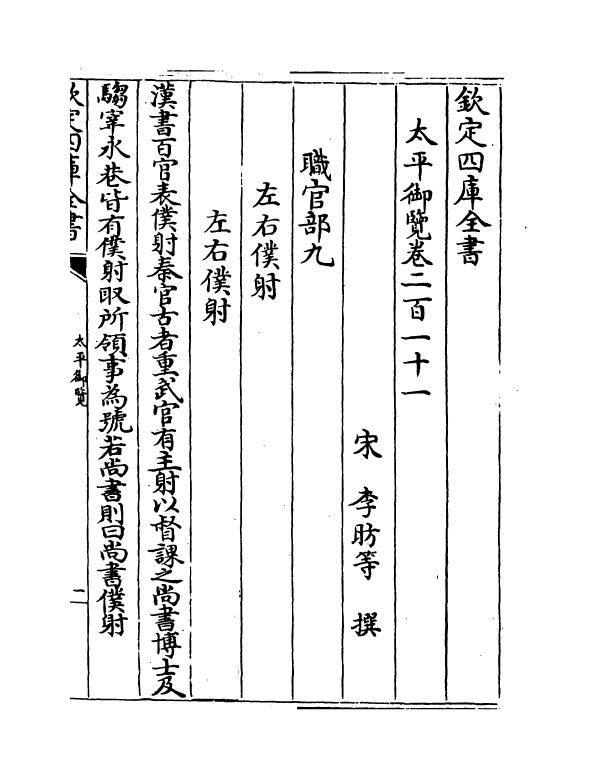 欽定四庫全書
太平御覽卷二百一十一
宋 李昉等 撰
職官部九
左右僕射
左右僕射
漢書百官表僕射秦官古者重武官有主射以督課之尚書博士及
騶宰永巷皆有僕射取所領事為號若尚書則曰尚書僕射
欽定四庫全書
太平御覽
二